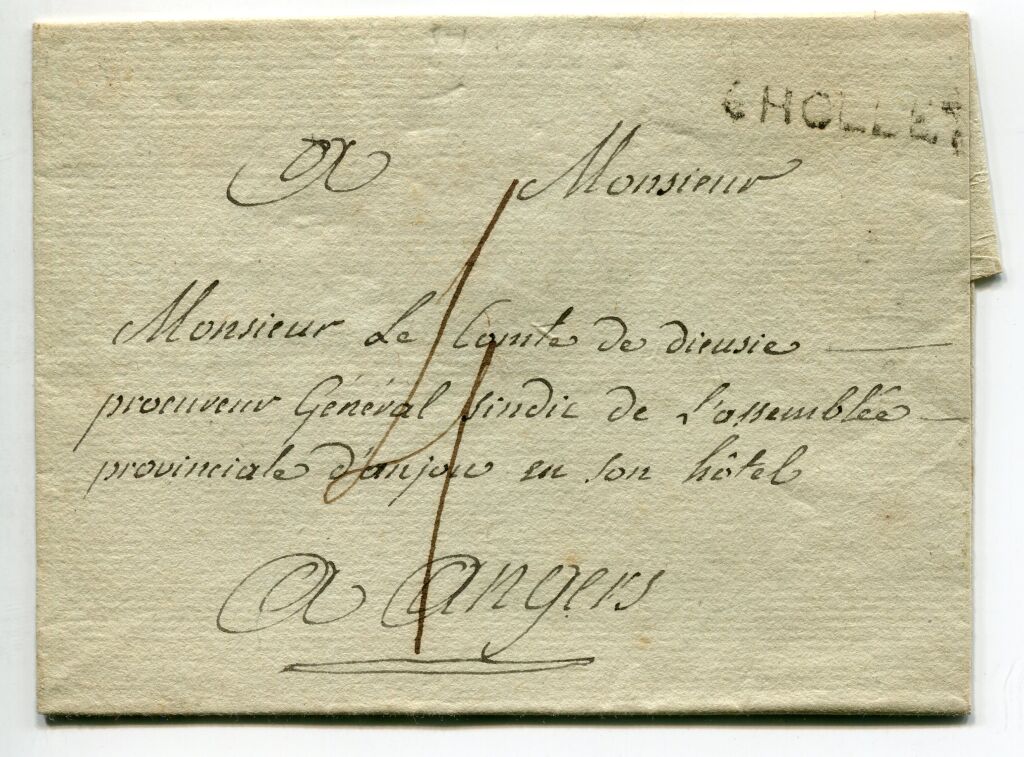 CHOLLET
A Monsieur
Monsieur Le Comte de dieusie
procureur Général sindic de L'assemblée
provinciale d'anjou en son hôtel
A Angers
4